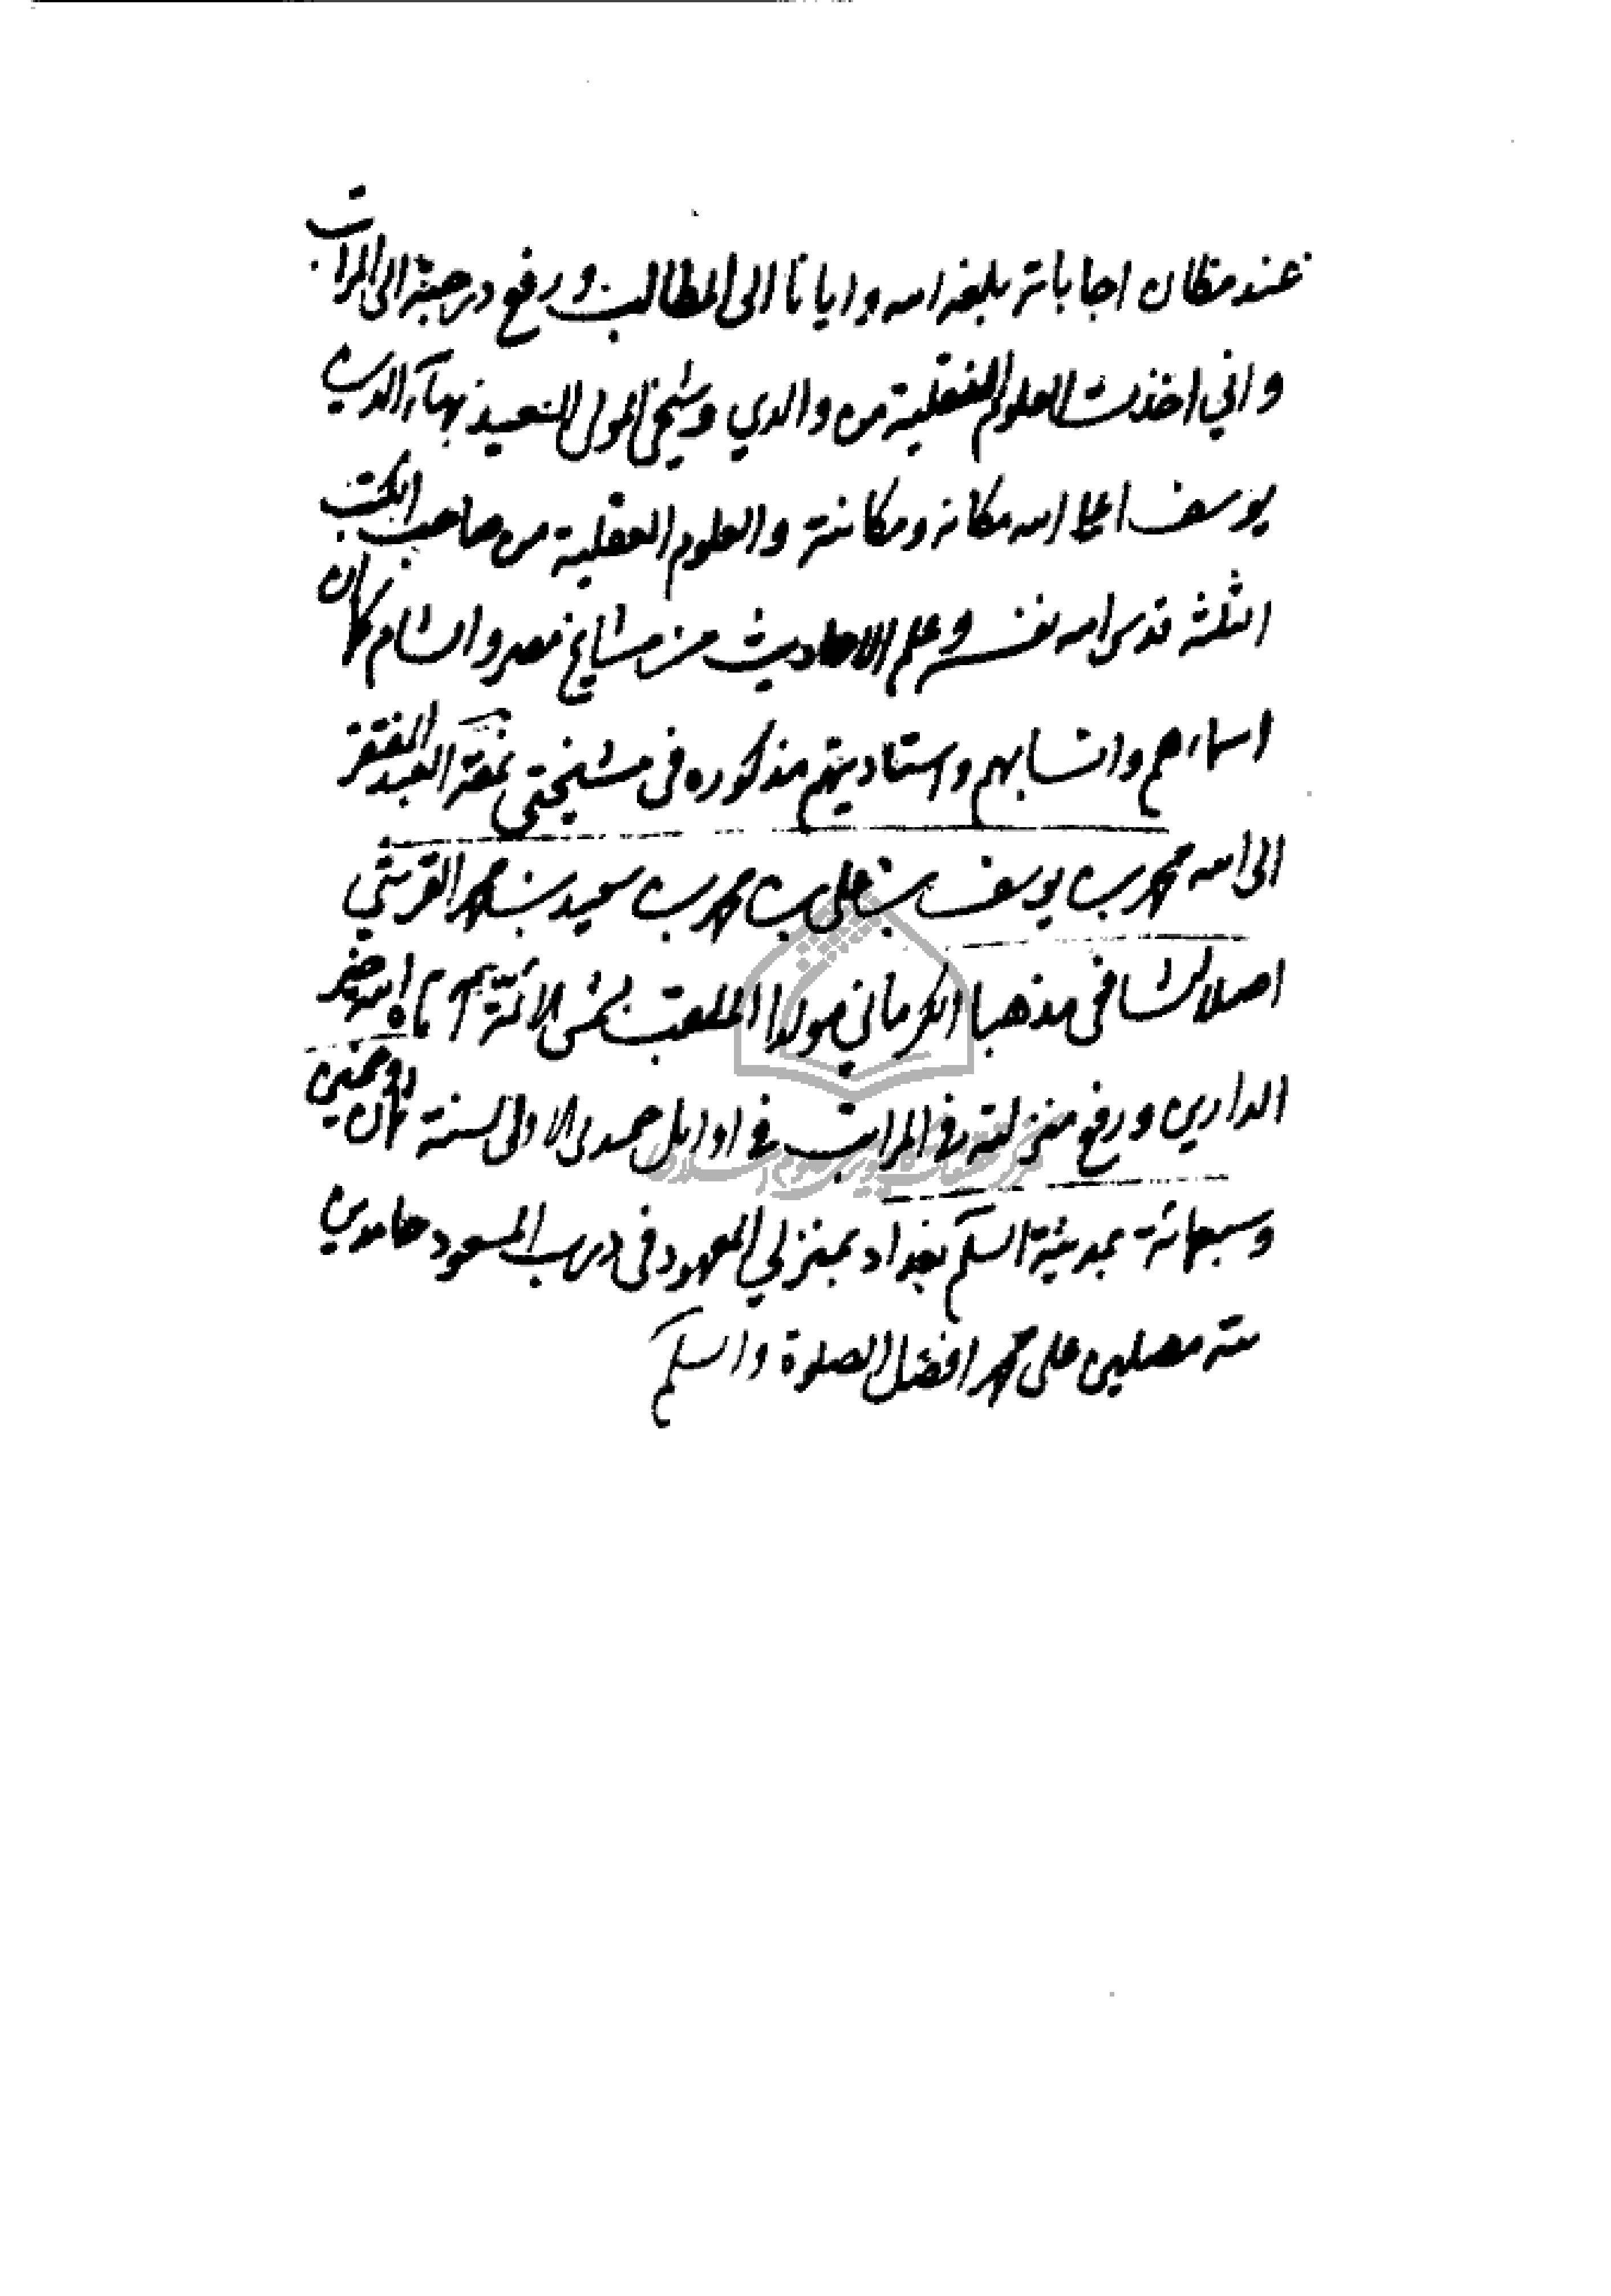 عند مظان اجاباته بلغه الله وايانا الى المطالب ورفع درجته الى المراتب
واني اخذت العلوم النقلية من والدي وشيخي المولى السعيد بهآء الدين
يوسف اعلى الله مكانه ومكانته والعلوم العقلية من صاحب الكتب
الثلثة قدس الله نفسه وعلم الاحاديث من مشايخ مصر والشام كان
اسماءهم وانسابهم واستاديتهم مذكوره فى مشيختي نمقة العبد الفقير
الى الله محمد بن يوسف بن على بن محمد بن سعيد بن محمد القرشي
اصلا الشافعي مذهبا الكرماني مولدا الملقب بشمس الائمة آتاه الله خير
الدارين ورفع منزلته في المراتب في اوايل جمدى الاولى لسنة ثمان وخمسين
وسبعمائة بمدينة السلم بغداد بمنزلي المعهود فى درب المسعود حامدين
لله مصلين على محمد افضل الصلوة والسلم